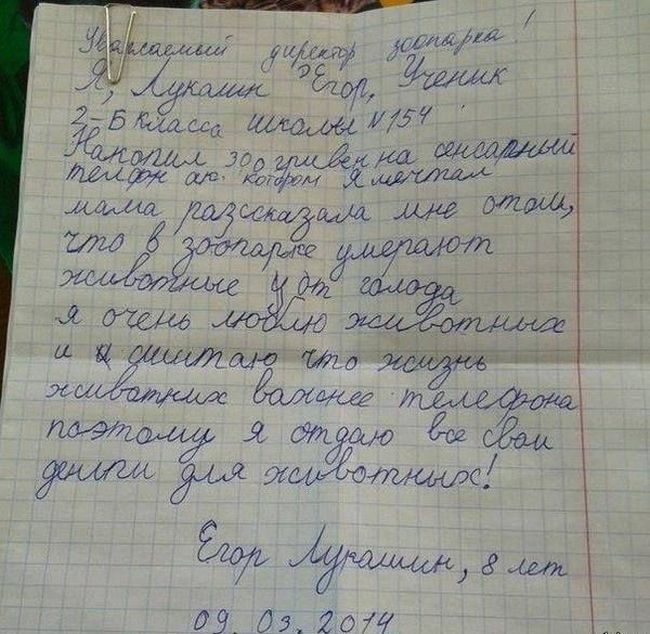 Уважаемый директор зоопарка!
Я, Лукашин Егор, Ученик
2-Б класса школы №154
Накопил 300 гривен на сенсарный
телфон о котором я мечтал
мама разссказала мне отом,
что в зоопарке умерают
животные от голода
я очень люблю животных
и сшитаю что жизнь
животних важнее телефона
поэтому я отдаю все свои
деньги для животных!
Егор Лукашин, 8 лет
09. 03. 2014